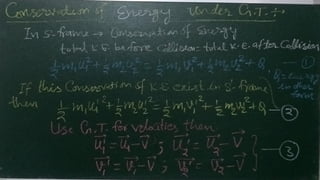 Conservation of Energy under G.T. :-
In S-frame → Conservation of Energy
total K.E. before Collision = total K.E. after Collision
½ m₁u₁² + ½ m₂u₂² = ½ m₁v₁² + ½ m₂v₂² + Q — ①
If this Conservation of K.E. exist in S' frame
then ½ m₁u₁'² + ½ m₂u₂'² = ½ m₁v₁'² + ½ m₂v₂'² + Q — ②
Use G.T. for velocities then
u₁' = u₁ - V ; u₂' = u₂ - V
v₁' = v₁ - V ; v₂' = v₂ - V } — ③